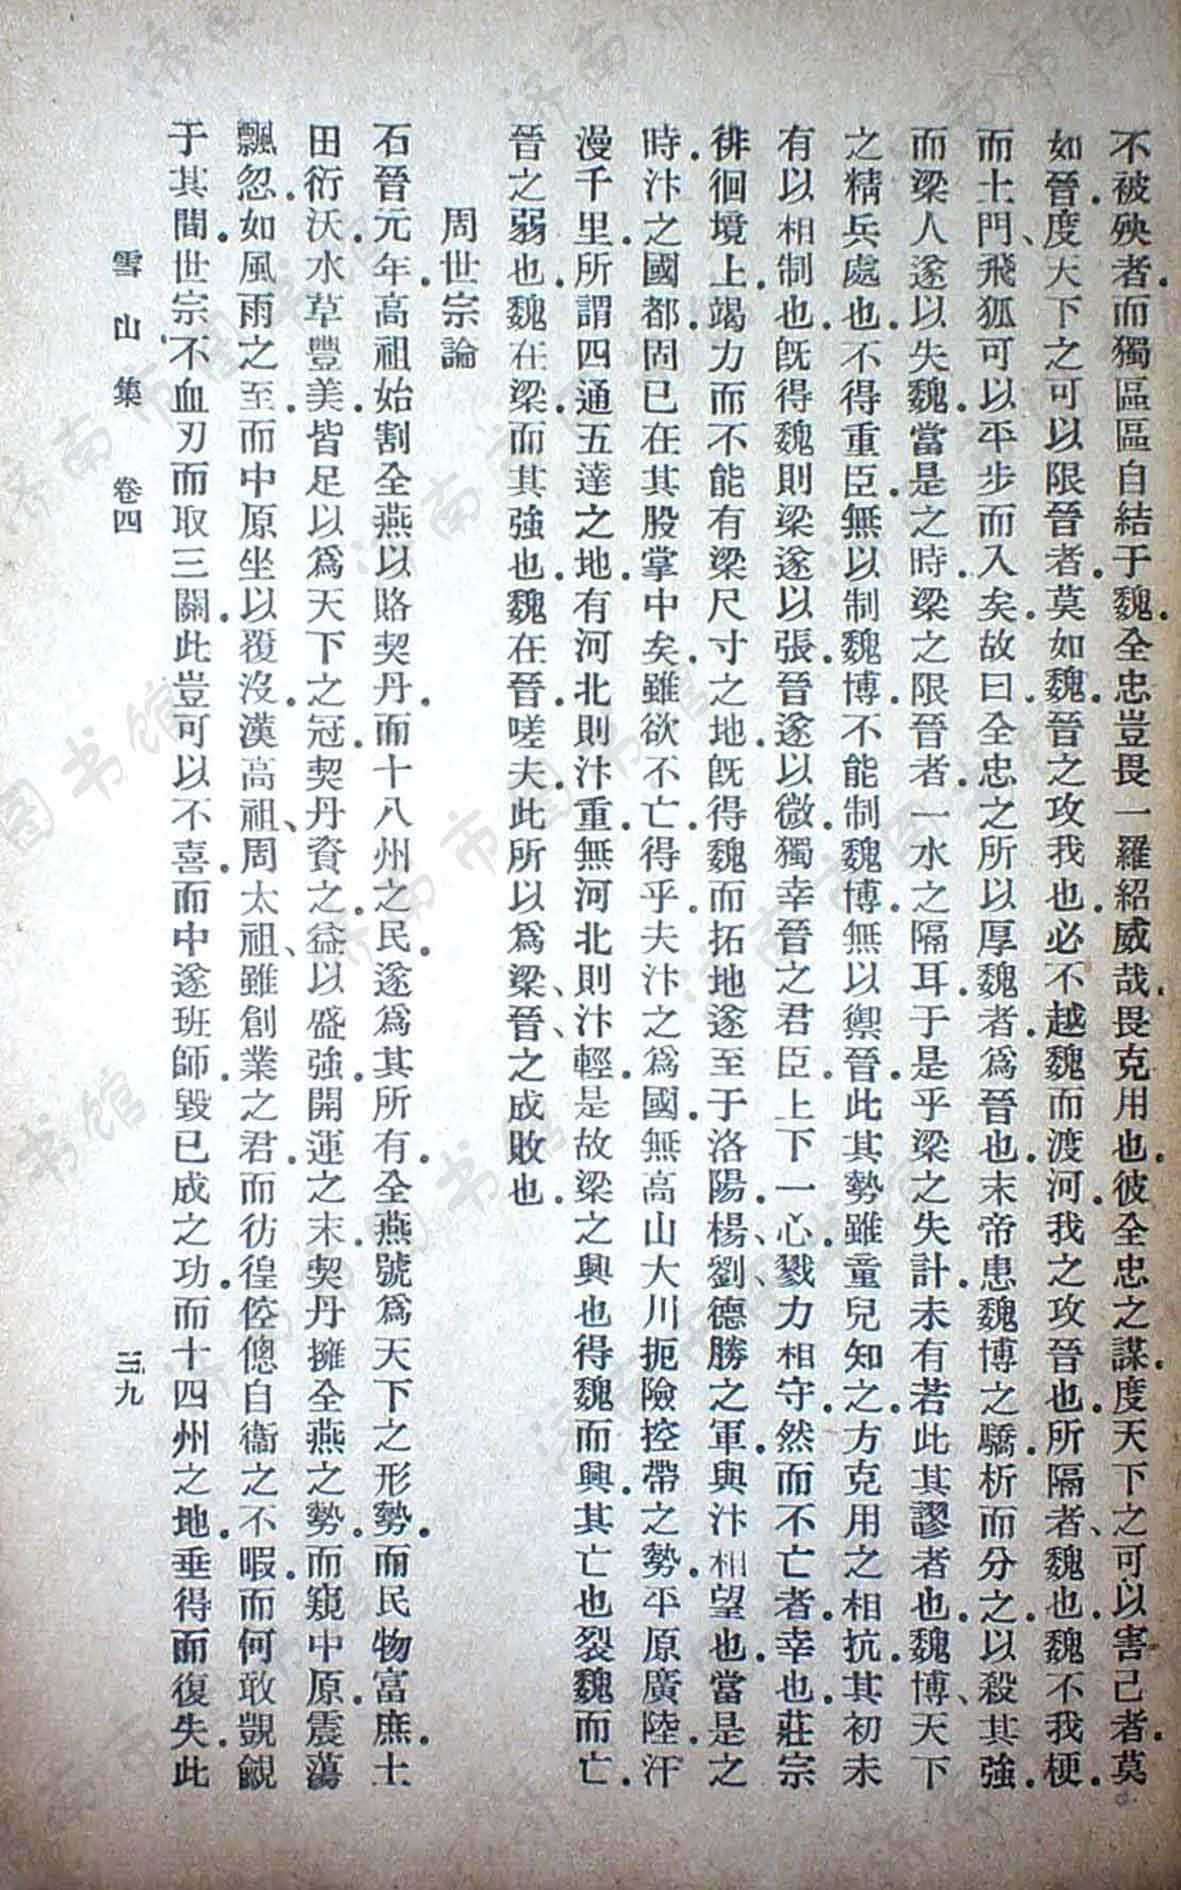 不被殃者而獨區區自結于魏全忠豈畏一羅紹威哉畏克用也彼全忠之謀度天下之可以害己者莫
如晉度天下之可以限晉者莫如魏晉之攻我也必不越魏而渡河我之攻晉也所隔者魏也魏不我梗
而土門飛狐可以平步而入矣故曰全忠之所以厚魏者爲晉也末帝患魏博之驕析而分之以殺其強
而梁人遂以失魏當是之時梁之限晉者一水之隔耳于是乎梁之失計未有若此其謬者也魏博天下
之精兵處也不得重臣無以制魏博不能制魏博無以禦晉此其勢雖童兒知之方克用之相抗其初未
有以相制也旣得魏則梁遂以張晉遂以微獨幸晉之君臣上下一心戮力相守然而不亡者幸也莊宗
徘徊境上竭力而不能有梁尺寸之地旣得魏而拓地遂至于洛陽楊劉德勝之軍與汴相望也當是之
時汴之國都固已在其股掌中矣雖欲不亡得乎夫汴之爲國無高山大川扼險控帶之勢平原廣陸汗
漫千里所謂四通五達之地有河北則汴重無河北則汴輕是故梁之興也得魏而興其亡也裂魏而亡
晉之弱也魏在梁而其強也魏在晉嗟夫此所以爲梁晉之成敗也
周世宗論
石晉元年高祖始割全燕以賂契丹而十八州之民遂爲其所有全燕號爲天下之形勢而民物富庶土
田衍沃水草豐美皆足以爲天下之冠契丹資之益以盛強開運之末契丹擁全燕之勢而窺中原震蕩
飄忽如風雨之至而中原坐以覆沒漢高祖周太祖雖創業之君而彷徨倥傯自衞之不暇而何敢覬覦
于其間世宗不血刃而取三關此豈可以不喜而中遂班師毀已成之功而十四州之地垂得而復失此
雪山集 卷四 三九
济南市图书馆